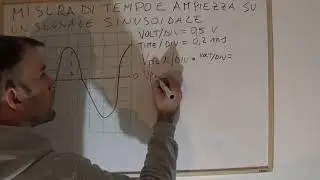 MISURA DI TEMPO E AMPIEZZA SU
UN SEGNALE SINUSOIDALE
VOLT/DIV = 0,5 V
TIME/DIV = 0,2 ms
VOLT/DIV =